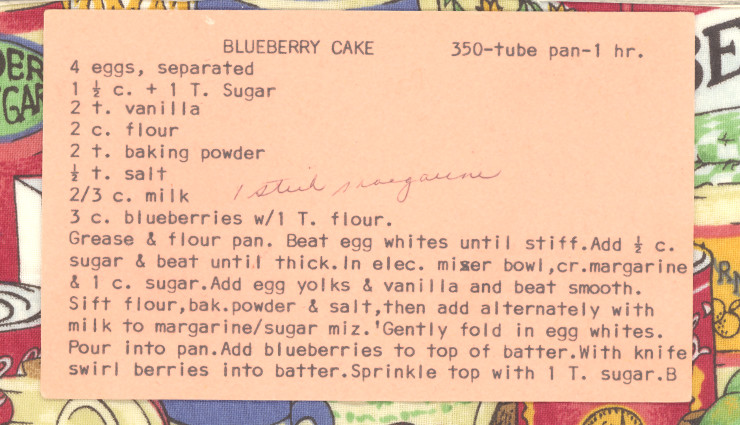 BLUEBERRY CAKE 350-tube pan-1 hr.
4 eggs, separated
1 ½ c. + 1 T. Sugar
2 t. vanilla
2 c. flour
2 t. baking powder
½ t. salt
2/3 c. milk 1 stick margarine
3 c. blueberries w/1 T. flour.
Grease & flour pan. Beat egg whites until stiff.Add ½ c.
sugar & beat until thick.In elec. mixer bowl,cr.margarine
& 1 c. sugar.Add egg yolks & vanilla and beat smooth.
Sift flour,bak.powder & salt,then add alternately with
milk to margarine/sugar miz.'Gently fold in egg whites.
Pour into pan.Add blueberries to top of batter.With knife
swirl berries into batter.Sprinkle top with 1 T. sugar.B